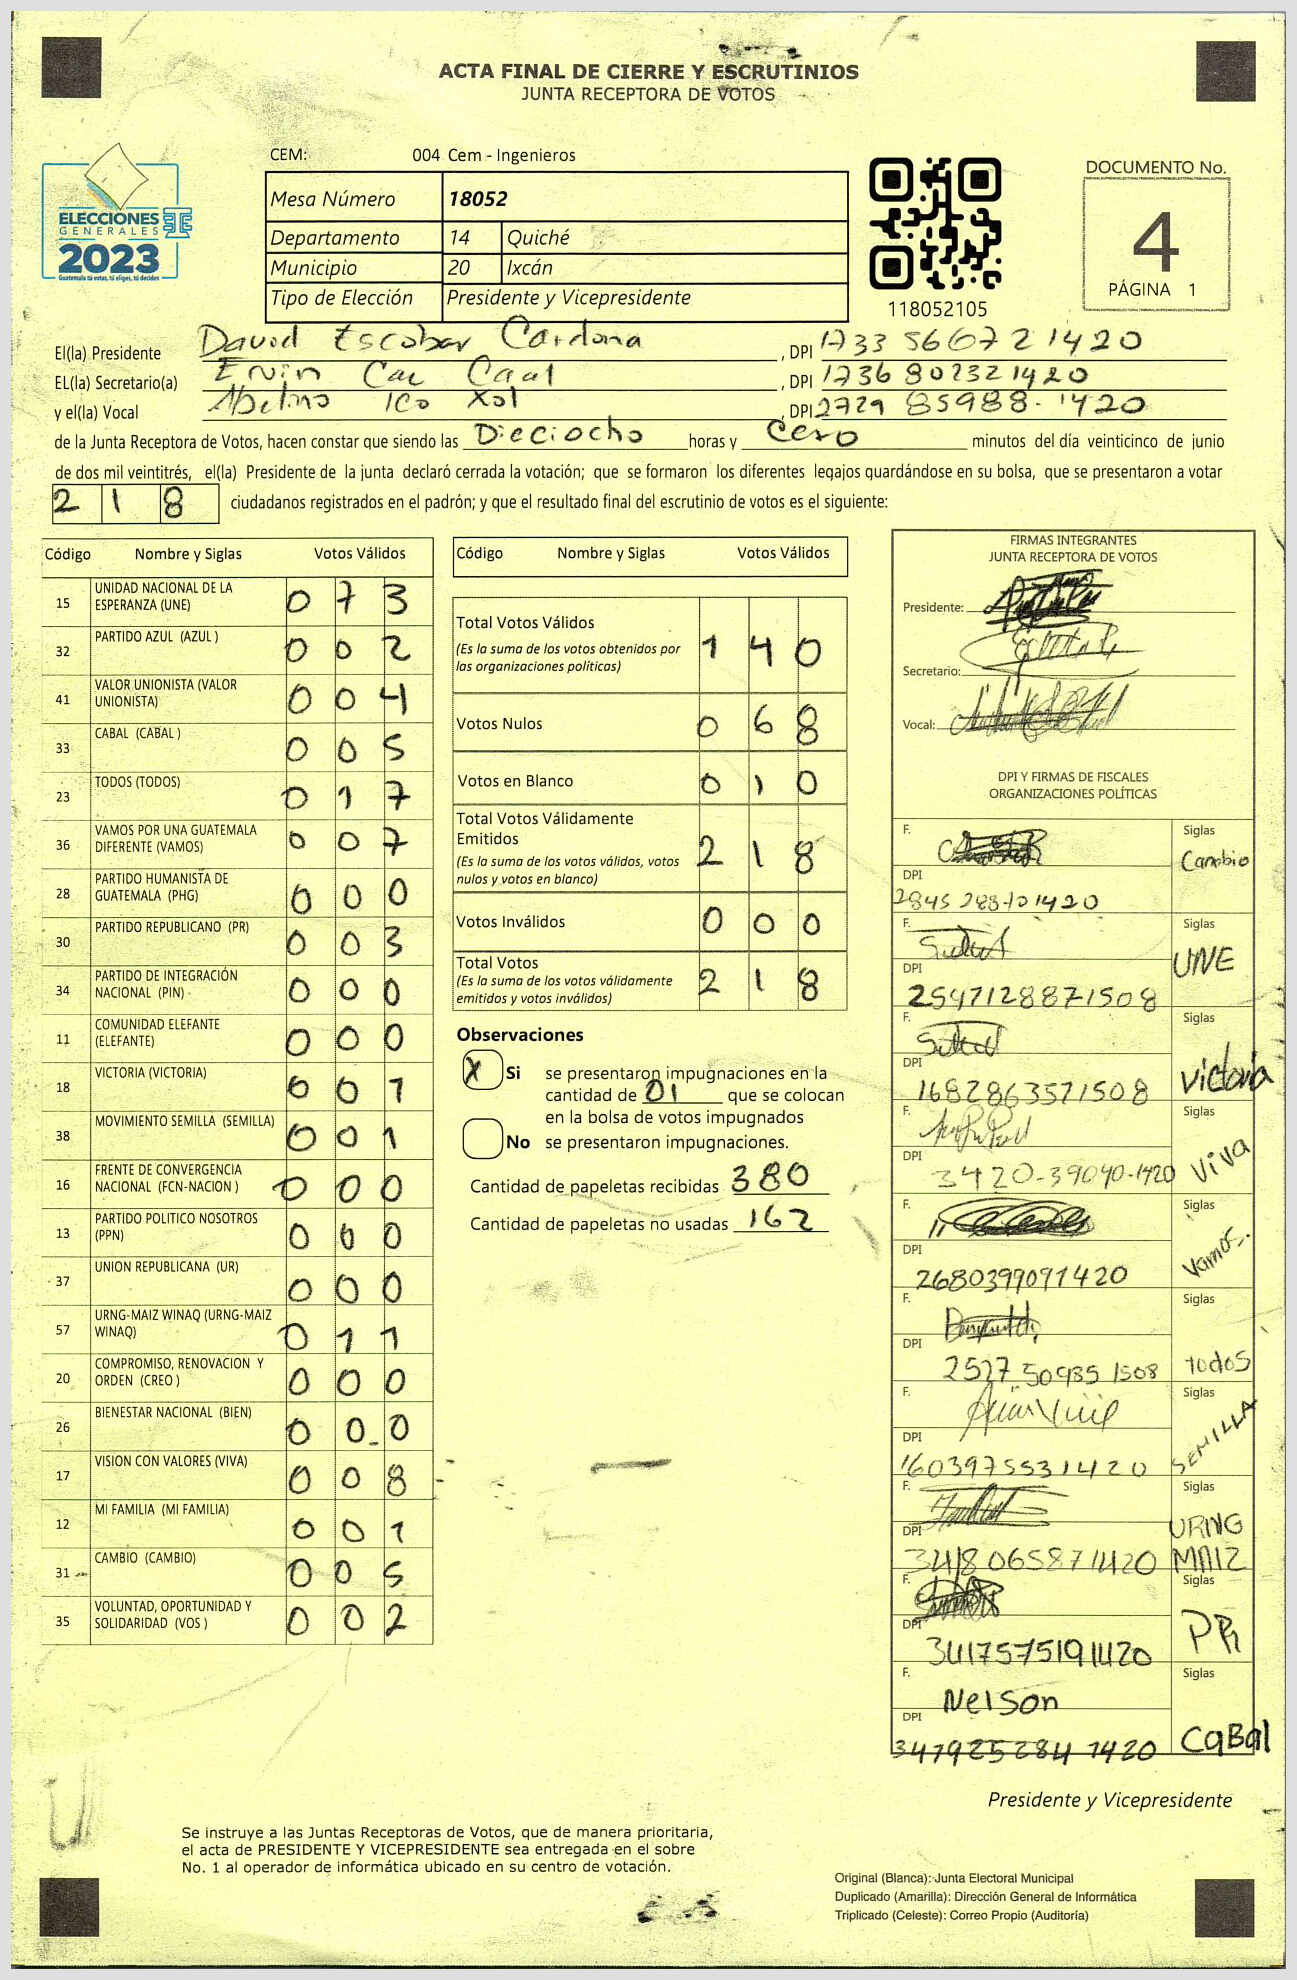 ACTA FINAL DE CIERRE Y ESCRUTINIOS
JUNTA RECEPTORA DE VOTOS
ELECCIONES
GENERALES
2023
Guatemala tú votas, tú eliges, tú decides
CEM: 004 Cem - Ingenieros
Mesa Número 18052
Departamento 14 Quiché
Municipio 20 Ixcán
Tipo de Elección Presidente y Vicepresidente
118052105
DOCUMENTO No.
4
PÁGINA 1
El(la) Presidente David Escobar Cardona , DPI 1733 56672 1420
EL(la) Secretario(a) Ervin Cac Caal , DPI 1736 80232 1420
y el(la) Vocal Abelino Ico Xol , DPI 2729 85988-1420
de la Junta Receptora de Votos, hacen constar que siendo las Dieciocho horas y Cero minutos del día veinticinco de junio
de dos mil veintitrés, el(la) Presidente de la junta declaró cerrada la votación; que se formaron los diferentes legajos guardándose en su bolsa, que se presentaron a votar
218 ciudadanos registrados en el padrón; y que el resultado final del escrutinio de votos es el siguiente:
Código Nombre y Siglas Votos Válidos
15 UNIDAD NACIONAL DE LA ESPERANZA (UNE) 073
32 PARTIDO AZUL (AZUL ) 002
41 VALOR UNIONISTA (VALOR UNIONISTA) 004
33 CABAL (CABAL ) 005
23 TODOS (TODOS) 017
36 VAMOS POR UNA GUATEMALA DIFERENTE (VAMOS) 007
28 PARTIDO HUMANISTA DE GUATEMALA (PHG) 000
30 PARTIDO REPUBLICANO (PR) 003
34 PARTIDO DE INTEGRACIÓN NACIONAL (PIN) 000
11 COMUNIDAD ELEFANTE (ELEFANTE) 000
18 VICTORIA (VICTORIA) 001
38 MOVIMIENTO SEMILLA (SEMILLA) 001
16 FRENTE DE CONVERGENCIA NACIONAL (FCN-NACION ) 000
13 PARTIDO POLITICO NOSOTROS (PPN) 000
37 UNION REPUBLICANA (UR) 000
57 URNG-MAIZ WINAQ (URNG-MAIZ WINAQ) 011
20 COMPROMISO, RENOVACION Y ORDEN (CREO ) 000
26 BIENESTAR NACIONAL (BIEN) 000
17 VISION CON VALORES (VIVA) 008
12 MI FAMILIA (MI FAMILIA) 001
31 CAMBIO (CAMBIO) 005
35 VOLUNTAD, OPORTUNIDAD Y SOLIDARIDAD (VOS ) 002
Código Nombre y Siglas Votos Válidos
Total Votos Válidos 140
(Es la suma de los votos obtenidos por
las organizaciones políticas)
Votos Nulos 068
Votos en Blanco 010
Total Votos Válidamente
Emitidos 218
(Es la suma de los votos válidos, votos
nulos y votos en blanco)
Votos Inválidos 000
Total Votos 218
(Es la suma de los votos válidamente
emitidos y votos inválidos)
Observaciones
X Si se presentaron impugnaciones en la
cantidad de 01 que se colocan
en la bolsa de votos impugnados
No se presentaron impugnaciones.
Cantidad de papeletas recibidas 380
Cantidad de papeletas no usadas 162
FIRMAS INTEGRANTES
JUNTA RECEPTORA DE VOTOS
Presidente:
Secretario:
Vocal:
DPI Y FIRMAS DE FISCALES
ORGANIZACIONES POLÍTICAS
F. Siglas
Cambio
DPI
F. Siglas
UNE
DPI
2547128871508
F. Siglas
Victoria
DPI
1682863571508
F. Siglas
Viva
DPI
3420-39040-1420
F. Siglas
Vamos.
DPI
2680399091420
F. Siglas
todos
DPI
2527 50985 1508
F. Siglas
SEMILLA
DPI
1603975531420
F. Siglas
URNG
MAIZ
DPI
3418 065871420
F. Siglas
PR
DPI
3417575191420
F. Siglas
Nelson
DPI
CaBal
347925284 1420
Presidente y Vicepresidente
Se instruye a las Juntas Receptoras de Votos, que de manera prioritaria,
el acta de PRESIDENTE Y VICEPRESIDENTE sea entregada en el sobre
No. 1 al operador de informática ubicado en su centro de votación.
Original (Blanca): Junta Electoral Municipal
Duplicado (Amarilla): Dirección General de Informática
Triplicado (Celeste): Correo Propio (Auditoría)